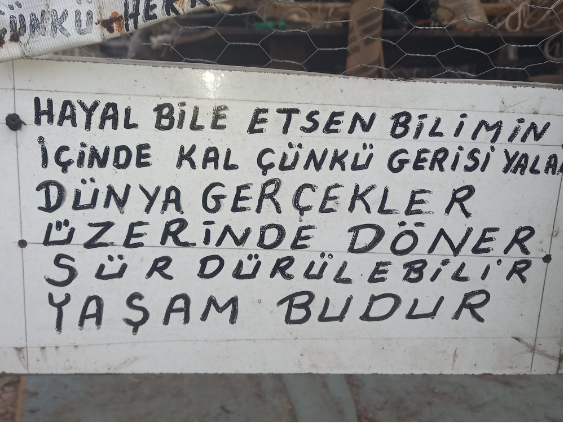 ÇÜNKÜ HER
HAYAL BİLE ETSEN BİLİMİN
İÇİNDE KAL ÇÜNKÜ GERİSİ YALA
DÜNYA GERÇEKLER
ÜZERİNDE DÖNER
SÜRDÜRÜLEBİLİR
YAŞAM BUDUR